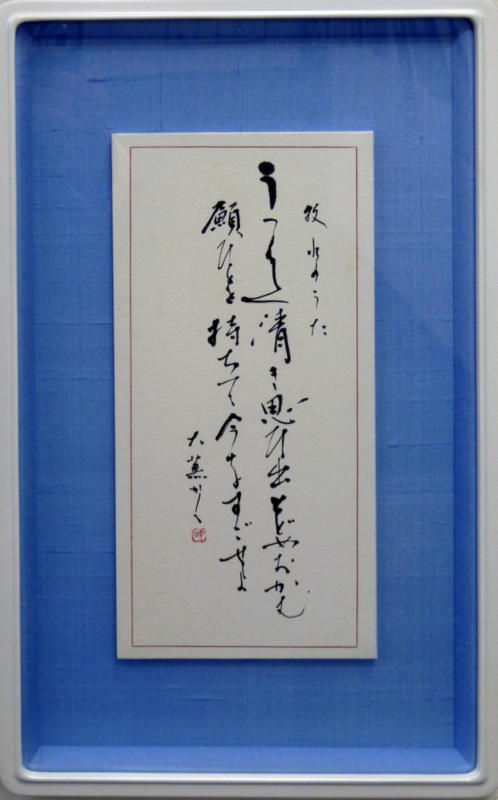 牧水のうた
うつくしく清き思ひ出とどめおかむ
願ひを持ちて今をすごせよ
かく